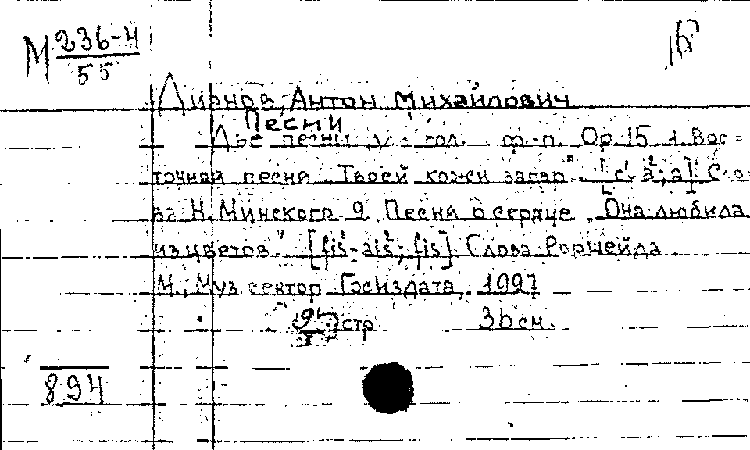 М 236-4
55
16
Дианов, Антон Михайлович
Песни
Две песни для гол. ф-п. Ор. 15 1. Вос-
точная песня "Твоей кожи загар". [c¹-a²; a] Сло-
ва Н. Минского 2. Песня о сердце "Она любила
из цветов" [fis¹-ais²; fis] Слова
М., Муз. сектор Госиздата, 1927
9 стр 36 см.
894